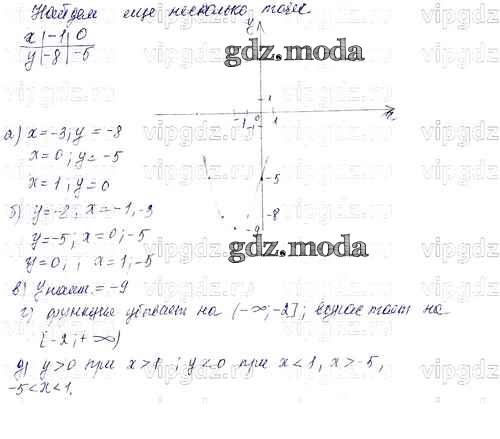 Найдем еще несколько точек.
x | -1 | 0
y | -8 | -5
а) x = -3; y = -8
x = 0; y = -5
x = 1; y = 0
б) y = -8; x = -1, -3
y = -5; x = 0; -5
y = 0; ; x = 1, -5
в) y наим. = -9
г) функция убывает на (-∞; -2]; возрастает на
[-2; +∞)
д) y > 0 при x > 1 ; y < 0 при x < 1, x > -5,
-5 < x < 1.
y
1
-1 0 1
-1
x
-5
-8
-9
gdz.moda
gdz.moda
vipgdz.ru